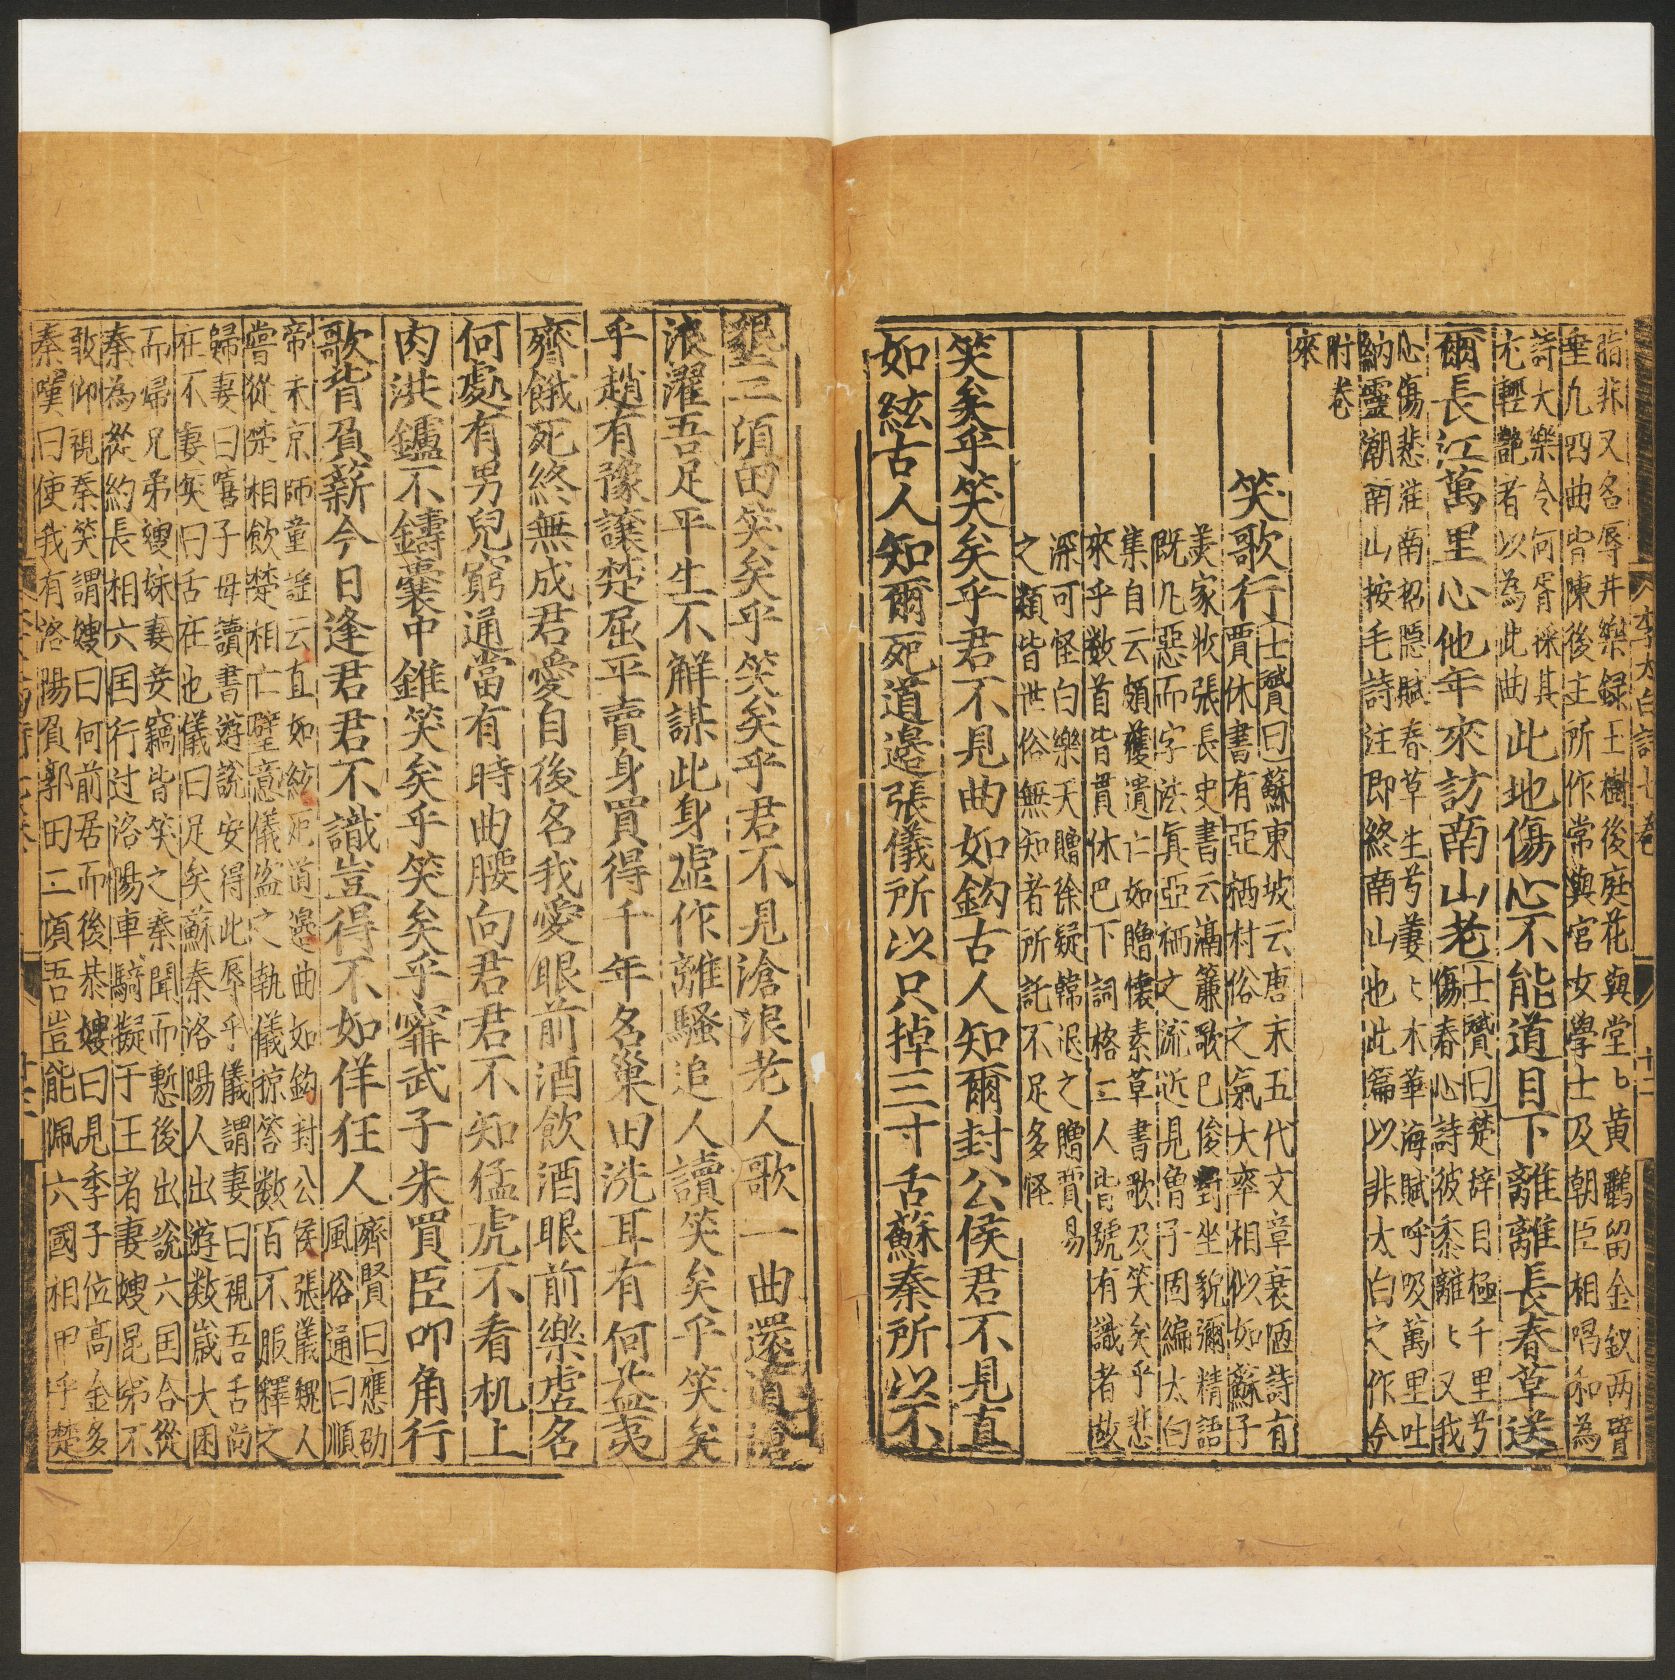 脂井又名辱井樂録玉樹後庭花與堂〻黄鸝留金釵两臂
垂凡四曲皆陳後主所作常與宮女學士及朝臣相唱和為
詩大樂令何胥採其
尤輕艶者以為此曲
此地傷心不能道目下離離長春草送
爾長江萬里心他年來訪南山老
士贇曰楚辞目極千里兮
傷春心詩彼黍離〻又我
心傷悲淮南招隠賦春草生兮萋〻木華海賦呼吸萬里吐
納靈潮南山按毛詩注即終南山也此篇以非太白之作今
附卷
來
笑歌行
士贇曰蘇東坡云唐末五代文章衰陋詩有
賈休書有亞栖村俗之氣大率相似如蘇子
美家收張長史書云隔簾歌已俊對坐貌彌精語
既凡惡而字法真亞栖之流近見曾子固編太白
集自云頗獲遺亡如贈懐素草書歌及笑矣乎悲
來乎数首皆貫休已下詞格二人皆號有識者故
深可怪白樂天贈徐疑韓退之贈賈易
之類皆世俗無知者所託不足多怪
笑矣乎笑矣乎君不見曲如鈎古人知爾封公侯君不見直
如絃古人知爾死道邉張儀所以只掉三寸舌蘇秦所以不
墾二頃田笑矣乎笑矣乎君不見滄浪老人歌一曲還道滄
浪濯吾足平生不解謀此身虚作離騷追人讀笑矣乎笑矣
乎趙有豫讓楚屈平賣身買得千年名巢田洗耳有何益夷
齊餓死終無成君愛自後名我愛眼前酒飲酒眼前樂虚名
何處有男兒窮通當有時曲腰向君君不知猛虎不看机上
肉洪鑪不鑄囊中錐笑矣乎笑矣乎寗武子朱買臣叩角行
歌背負薪今日逢君君不識豈得不如佯狂人
齊賢曰應劭
風俗通曰順
帝末京師童謡云直如絃死道邉曲如鈎封公侯張儀魏人
嘗從楚相飲楚相亡璧意儀盜之執儀掠笞数百不服釋之
歸妻曰嘻子毋讀書遊說安得此辱乎儀謂妻曰視吾舌尚
在不妻笑曰舌在也儀曰足矣蘇秦洛陽人出遊数歳大困
而歸兄弟嫂妹妻妾竊皆笑之秦聞而慙後出說六囯合從
秦為從約長相六囯行过洛陽車騎擬于王者妻嫂昆弟不
敢仰視秦笑謂嫂曰何前居而後恭嫂曰見季子位高金多
秦嘆曰使我有洛陽負郭田二頃吾豈能佩六國相印乎楚
李太白詩七卷
十二